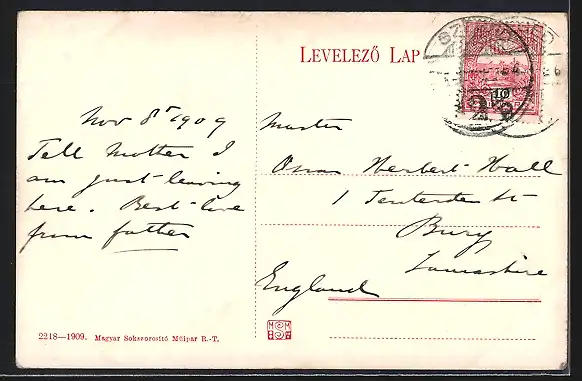 LEVELEZŐ LAP
10
Nov 8th 1909
Tell Mother I
am just leaving
here. Best love
from father
Master
Oscar Herbert Hall
1 Tenterden St
Bury
Lancashire
England
2218—1909. Magyar Sokszorosító Műipar R.-T.